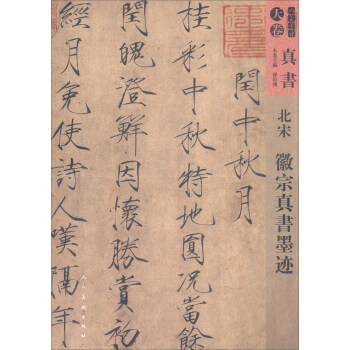 天卷
真書
北宋
徽宗真書墨迹
閏中秋月
桂彩中秋特地圓況當餘
閏魄澄鮮因懷勝賞初
經月免使詩人嘆隔年
人民美術出版社